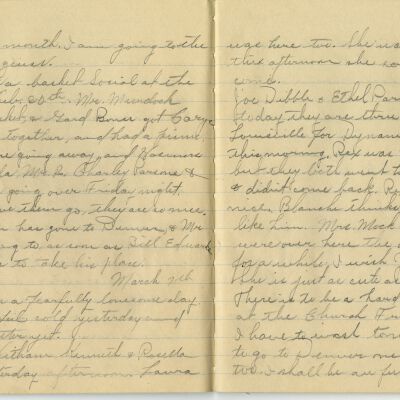 month. I am going to the
a basket Social at the
20th. Mr. Murdock
& Gard Romer got
together, and had a
going away, and
Mr. & Charley Parsons &
going over Friday night.
them go, they are so nice.
has gone to Denver, & Mr.
to as soon as Bill Edwards
to take his place.
March 7th
a fearfully lonesome day
cold yesterday and
yet.
Kenneth & Rosella
afternoon. Laura
was here too. She
this afternoon she
come.
Joe Dibble & Ethel
today they are
Louisville for
this morning. Rex was
but they both went
& didn't come back.
nice, Blanche thinks
like him. Mrs. Mock
were over here the
for a while, I wish
she is just as cute as
There is to be a hard
at the Church
I have to wash
to go to Denver one
two. I shall be an